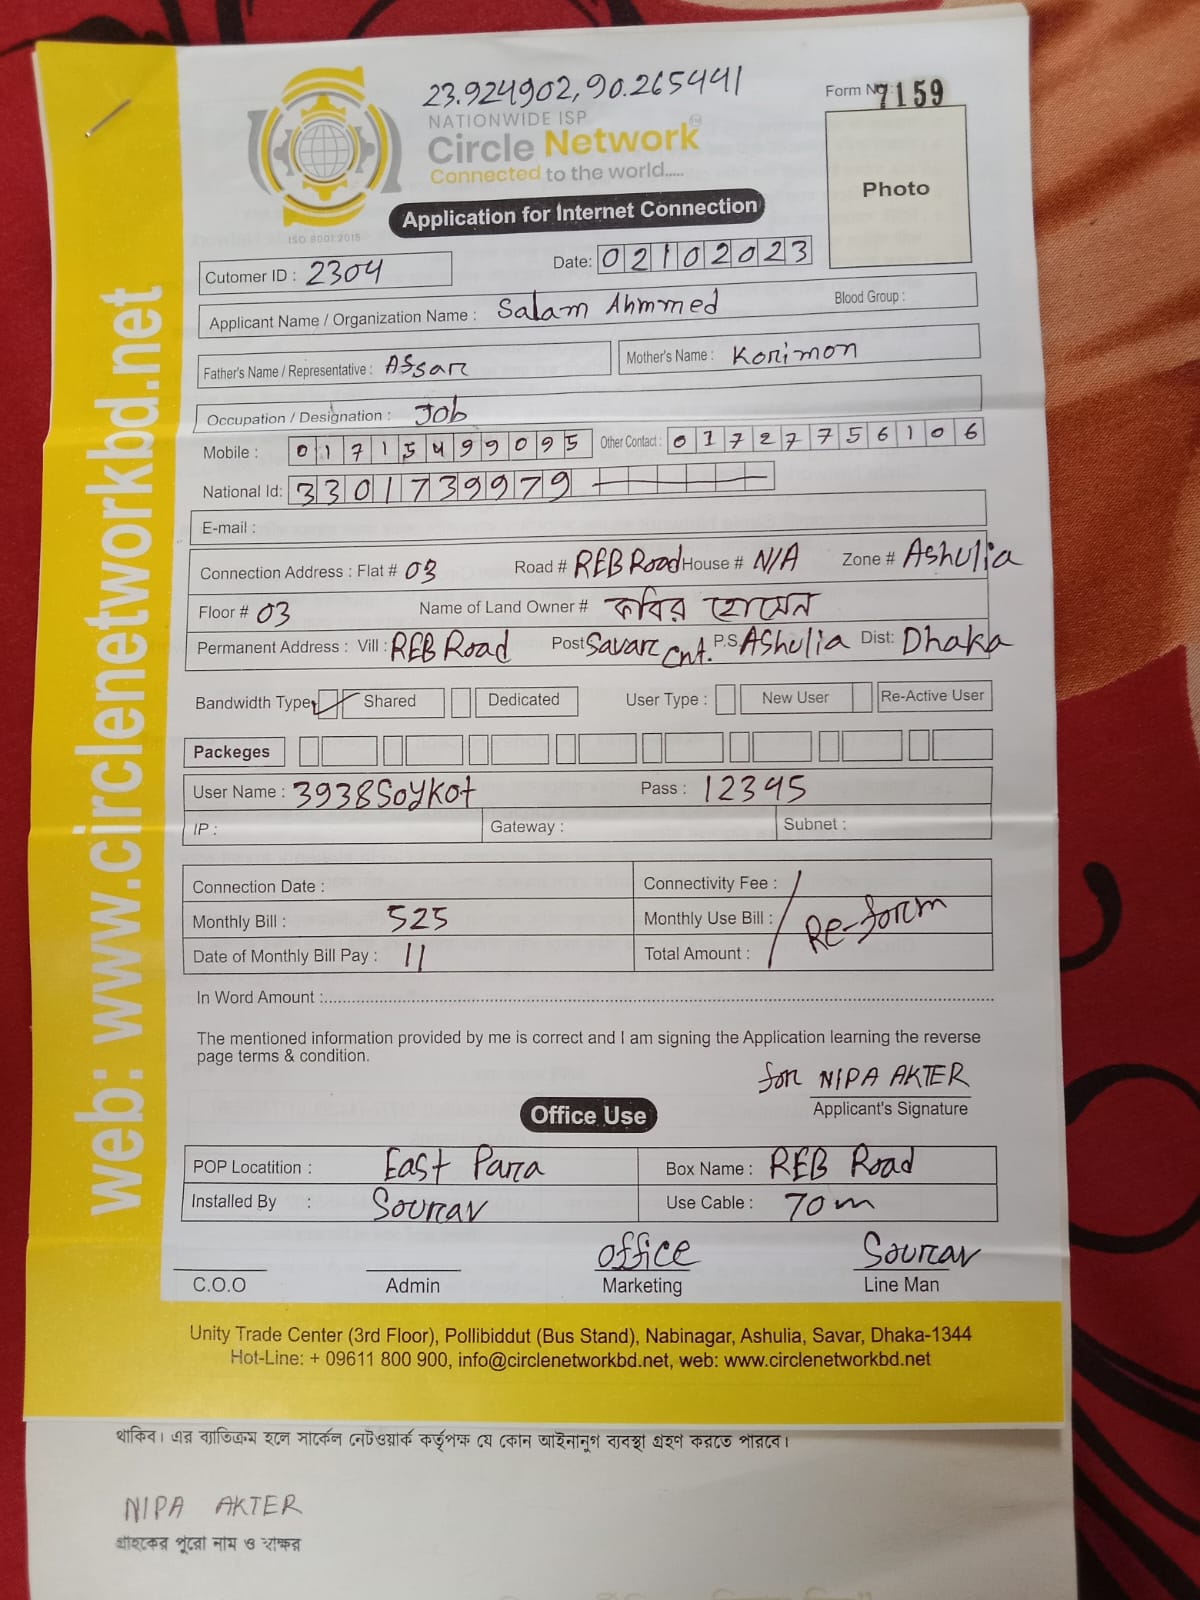 23.924902, 90.265441
Form No: 7159
NATIONWIDE ISP
Circle Network
Connected to the world.....
ISO 9001:2015
Photo
Application for Internet Connection
Cutomer ID : 2304
Date: 02102023
Applicant Name / Organization Name : Salam Ahmmed Blood Group :
Father's Name / Representative : ASsar Mother's Name : Korimon
Occupation / Designation : Job
Mobile : 01715499095 Other Contact : 01727756106
National Id: 3301739979
E-mail :
Connection Address : Flat # 03 Road # REB Road House # N/A Zone # Ashulia
Floor # 03 Name of Land Owner # কবির হোসেন
Permanent Address : Vill : REB Road Post Savar Cnt. P.S. AShulia Dist: Dhaka
Bandwidth Type Shared Dedicated User Type : New User Re-Active User
Packeges
User Name : 3938Soykot Pass : 12345
IP : Gateway : Subnet :
Connection Date : Connectivity Fee :
Monthly Bill : 525 Monthly Use Bill : Re-form
Date of Monthly Bill Pay : 11 Total Amount :
In Word Amount :
The mentioned information provided by me is correct and I am signing the Application learning the reverse
page terms & condition.
for NIPA AKTER
Applicant's Signature
Office Use
POP Locatition : East Para Box Name : REB Road
Installed By : Sourav Use Cable : 70m
office Sourav
C.O.O Admin Marketing Line Man
Unity Trade Center (3rd Floor), Pollibiddut (Bus Stand), Nabinagar, Ashulia, Savar, Dhaka-1344
Hot-Line: + 09611 800 900, info@circlenetworkbd.net, web: www.circlenetworkbd.net
web: www.circlenetworkbd.net
থাকিব। এর ব্যাতিক্রম হলে সার্কেল নেটওয়ার্ক কর্তৃপক্ষ যে কোন আইনানুগ ব্যবস্থা গ্রহণ করতে পারবে।
NIPA AKTER
গ্রাহকের পুরো নাম ও স্বাক্ষর